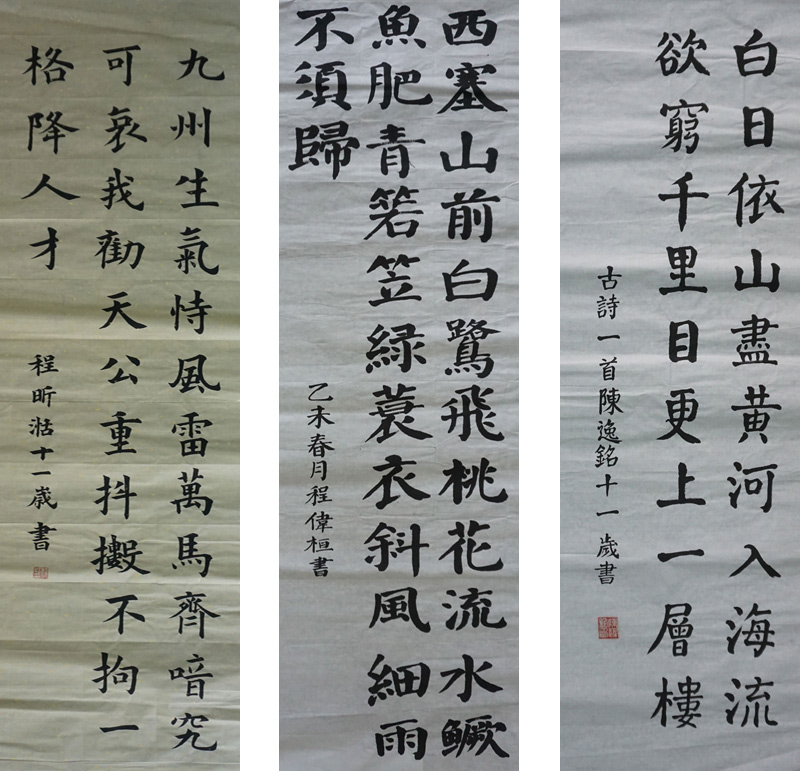 九州生氣恃風雷萬馬齊喑究
可哀我勸天公重抖擻不拘一
格降人才
程昕湉十一歲書
西塞山前白鷺飛桃花流水鱖
魚肥青箬笠緑蓑衣斜風細雨
不須歸
乙未春月程偉桓書
白日依山盡黄河入海流
欲窮千里目更上一層樓
古詩一首陳逸銘十一歲書